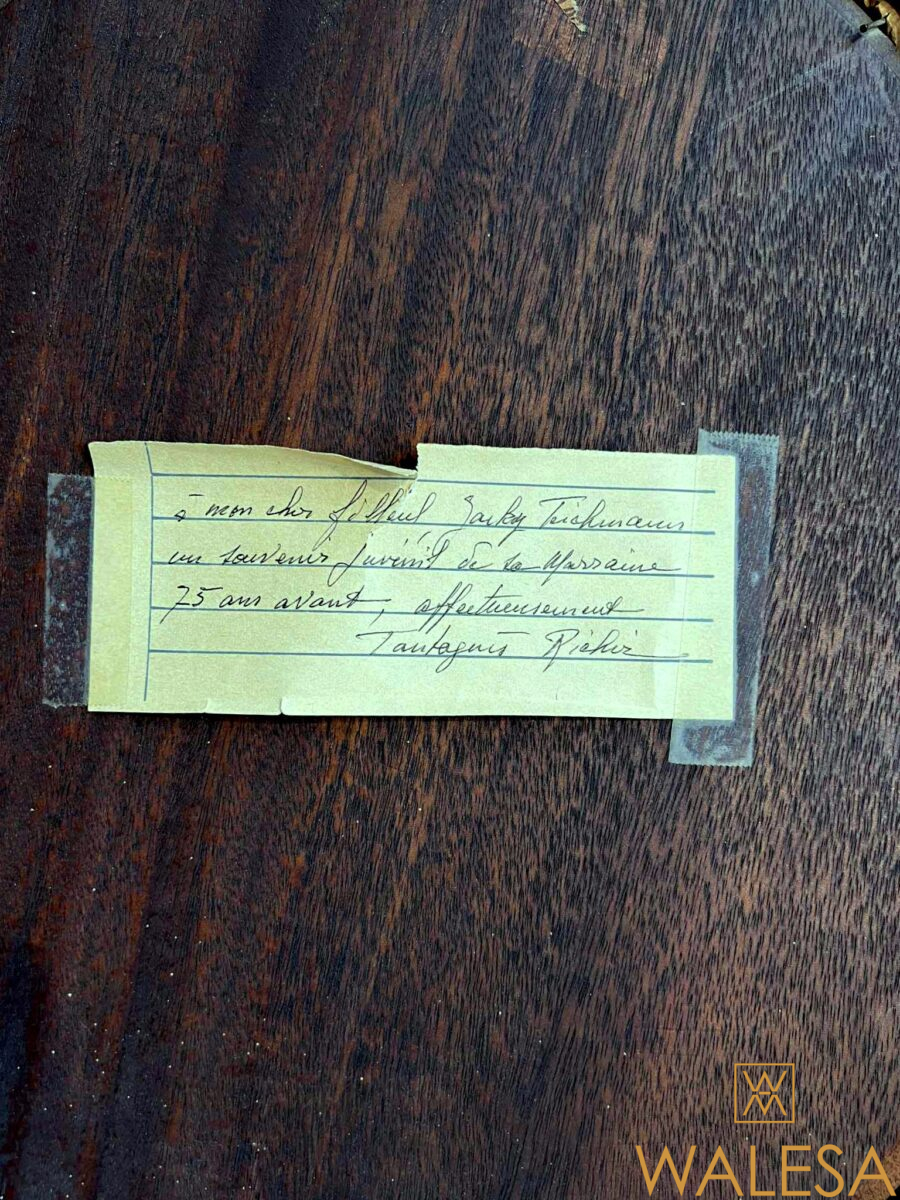 à mon cher filleul, Jacky Teichmann
un souvenir juvénil de sa Marraine
75 ans avant, affectueusement
Richir
WALESA